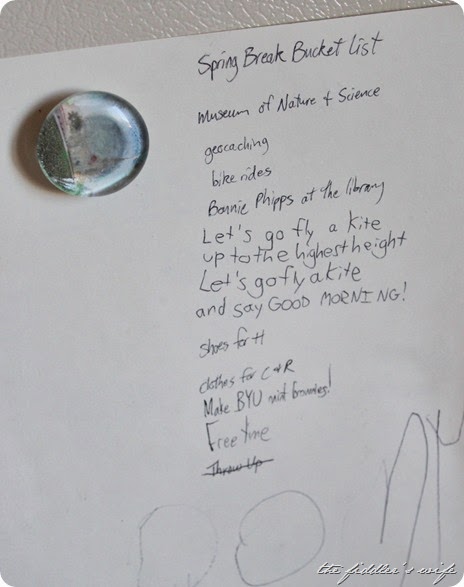 Spring Break Bucket List
Museum of Nature & Science
geocaching
bike rides
Bonnie Phipps at the library
Let's go fly a kite
up to the highest height
Let's go fly a kite
and say GOOD MORNING!
shoes for H
clothes for C & R
Make BYU mint brownies!
Free time
Throw Up
the fiddler's wife